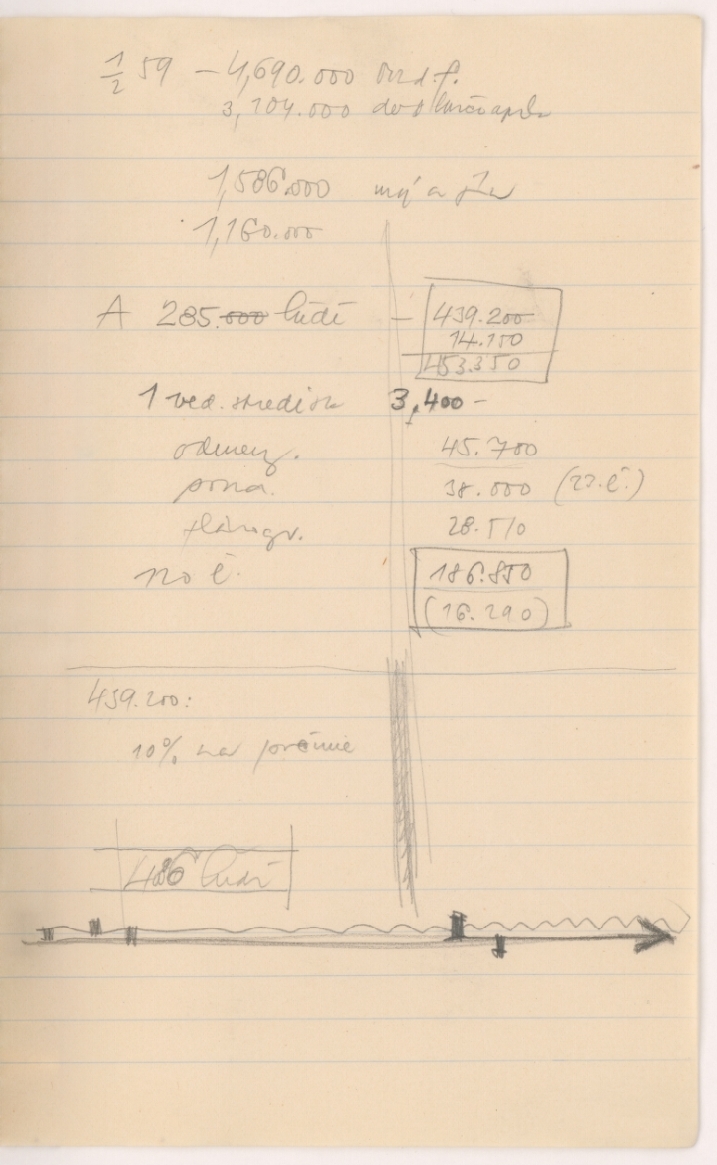 1/2 59 – 4,690.000 mzd. f.
3,104.000 do
1,586.000 máj a jún
1,160.000
A 285.000 ľudí – 439.200
14.150
453.350
1 ved. stredisk 3,400 –
odmeny. 45.700
38.000 (22.č.)
28.510
no č. 186.850
(16.290)
439.200:
10% na prémie
486 ľudí